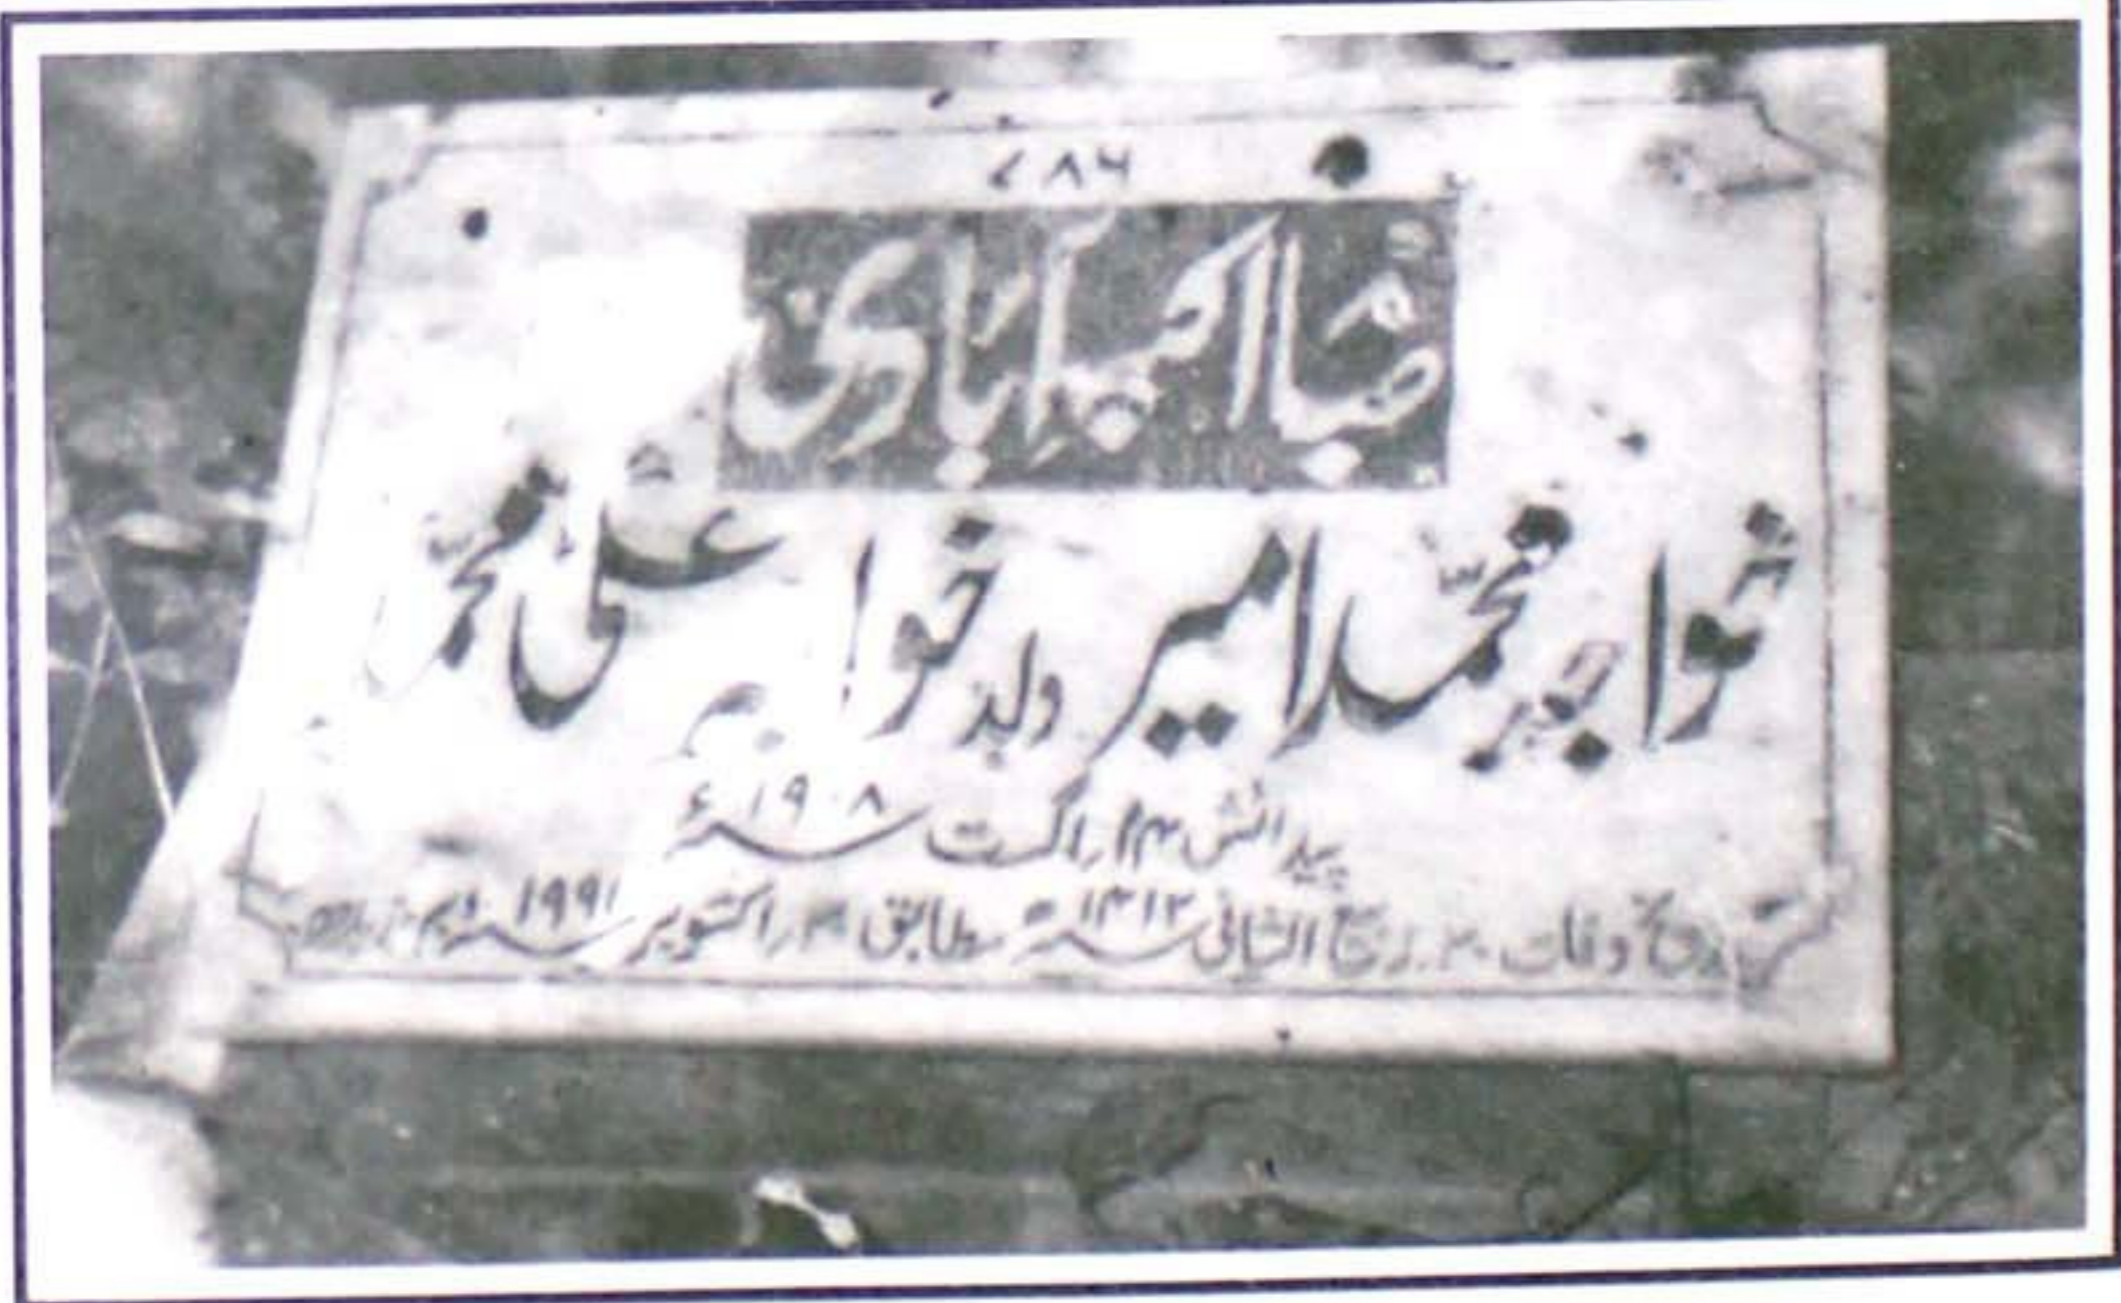 ۷۸۶
صبا اکبر آبادی
خواجہ محمد امیر ولد خواجہ علی محمد
پیدائش ۱۴ اگست ۱۹۰۸ء
تاریخ وفات ۲۰ ربیع الثانی ۱۴۱۲ مطابق ۳۰ اکتوبر ۱۹۹۱